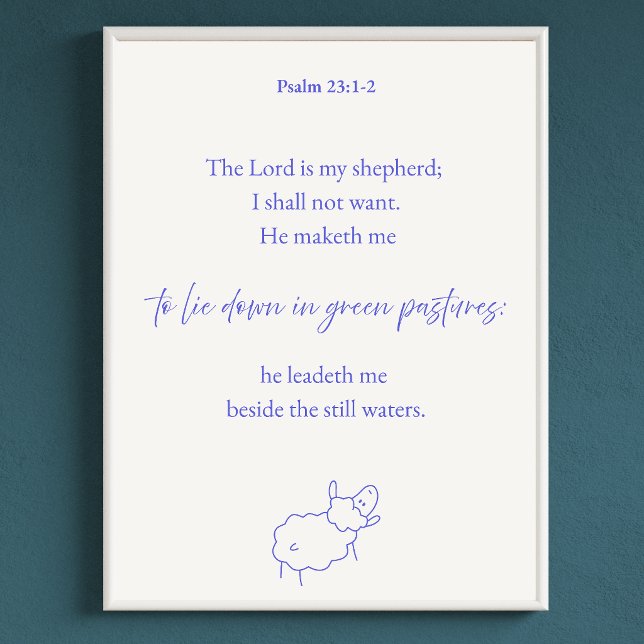 Psalm 23:1-2
The Lord is my shepherd;
I shall not want.
He maketh me
to lie down in green pastures:
he leadeth me
beside the still waters.